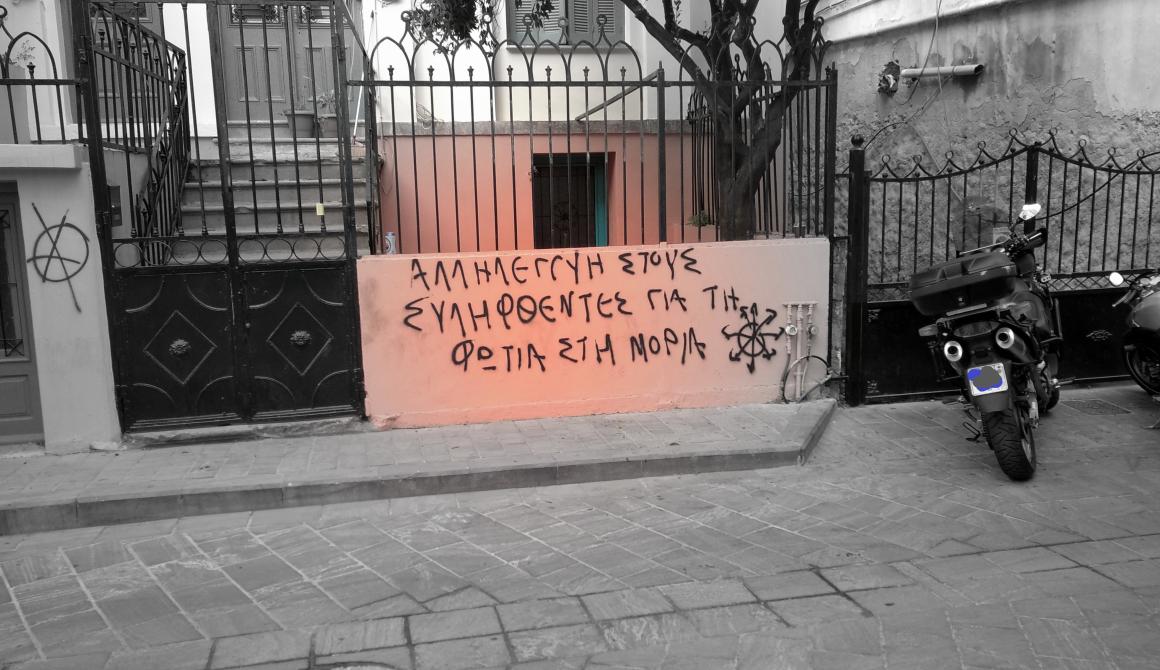 ΑΛΛΗΛΕΓΓΥΗ ΣΤΟΥΣ
ΣΥΛΗΦΘΕΝΤΕΣ ΓΙΑ ΤΗ
ΦΩΤΙΑ ΣΤΗ ΜΟΡΙΑ